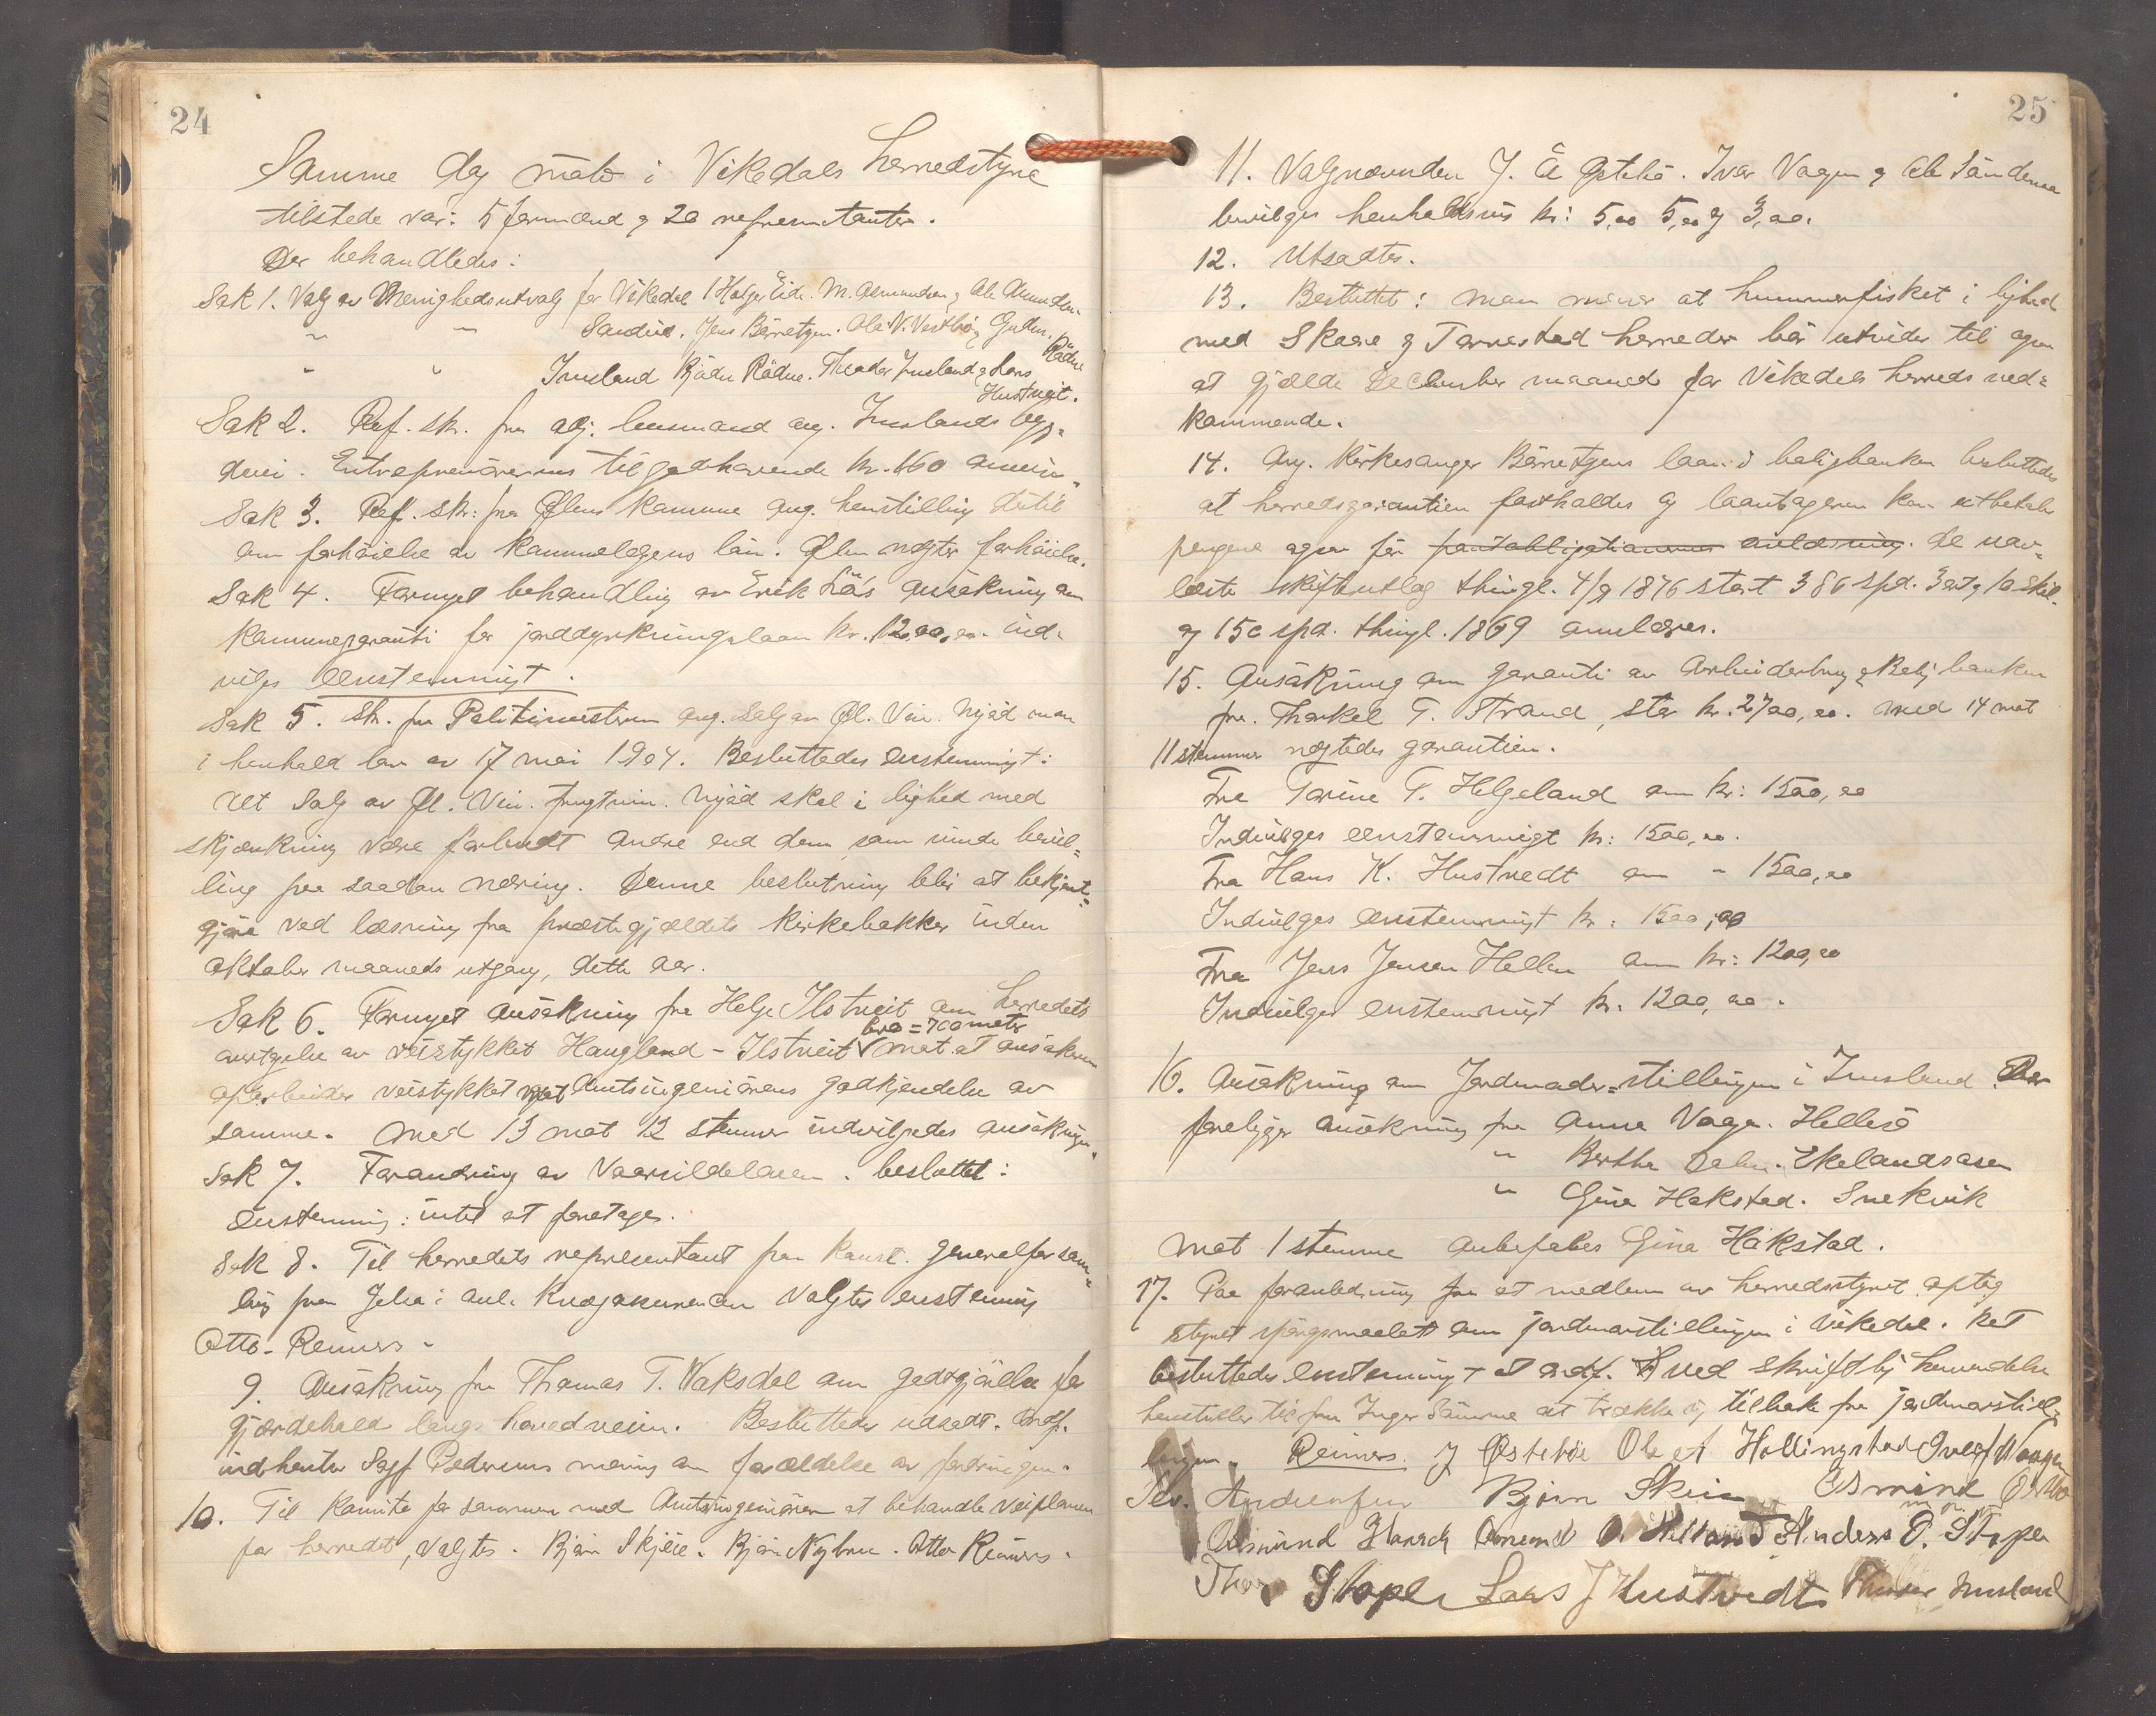 24
Samme dag møte i Vikedals herredstyre
tilstede var: 5 formænd og 20 representanter.
Der behandledes:
Sak 1. Valg av Menighedsutvalg for Vikedal 1 Holger Eide. M. Asmundsen og Ole Amundsen
" " Sandeid. Jens Børretzen. Ole N. Vestbø og Gudm. Rødne
" " Imsland Bjådn Rødne. Theodor Imsland og Lars Hustveit.
Sak 2. Ref. skr. fra adj. lensmand ang. Imslands byg=
devei. Entreprenørernes tilgodehavende kr. 160 anvis=
Sak 3. Ref. skr. fra Ølens Kommune ang. henstilling dertil
om forhøielse av kommunelægens løn. Ølen nægter forhøielse.
Sak 4. Fornyet behandling av Erik Lås ansøkning om
Kommunegaranti for jorddyrkningslaan kr. 1200,00. ind-
vilges eenstemmigt.
Sak 5. Skr. fra Politimesteren ang. Salg av Øl. Vin. Mjød m.m.
i henhold lov av 17 mai 1904. Besluttedes Enstemmigt:
Alt Salg av Øl. Vin. frugtvin. Mjød skal i lighed med
skjænkning være forbudt andre end dem som inde bevil=
ling paa saadan næring. Denne beslutning blir at bekjent=
gjøre ved læsning fra præstegjældets kirkebakker inden
oktober maaneds utgang, dette aar.
Sak 6. Fornyet Ansøkning fra Helge Ilstveit om herredets
overtagelse av veistykket Haugland - Ilstveit bro = 700 meter mot at ansøkeren
oparbeider veistykket mot Amtsingeniørens godkjendelse av
samme. Med 13 mot 12 stemmer indvilgedes ansøkningen.
Sak 7. Forandring av Vaarsildeloven. besluttet:
Enstemmig: intet at foretages.
Sak 8. Til herredets representant paa Konst. generalforsam=
ling paa Jelsa i anl. Kvægakurencen Valgtes enstemmig
Otto Reimers.
9. Ansøkning fra Thomas T. Vaksdal om godtgjørelse for
gjærdehold langs hovedveien. Besluttedes udsadt. Ordf.
indhenter Sagf. Pedersens mening om forældelse av fordringen.
10. Til Komite for sammen med Amtsingeniøren at behandle Veiplanen
for herredet, valgtes. Bjørn Skjeie. Bjørn Nybru. Otto Reimers.
25
11. Valgnævnden J. Å Østebø. Ivar Vagen og Ole Søndenaa
bevilges henholdsvis kr: 5,00 5,00 og 3,00.
12. Utsadtes.
13. Besluttet: Man mener at hummerfisket i lighed
med Skaare og Torvestad herreder bør utvides til ogsaa
at gjælde December maaned for Vikedals herreds ved=
kommende.
14. Ang. Kirkesanger Børretzens laan i boligbanken besluttedes
at herredsgarantien fastholdes og laantageren kan utbetales
pengene ogsaa før pantobligationernes avlæsning. de uav=
læste skifteutlæg thingl. 4/9 1876 stort 386 spd. 3 ort og 10 skil.
og 150 spd. thingl. 1869 avlæses.
15. Ansøkning om garanti av Arbeiderbrug og Boligbanken
fra. Thorkel T. Strand, stor kr. 2700,00. med 14 mot
11 stemmer nægtedes garantien.
Fra Torine T. Helgeland om kr: 1500,00
Indvilges eenstemmigt kr: 1500,00.
Fra Hans K. Hustvedt om " 1500,00
Indvilges Enstemmigt kr: 1500,00
Fra Jens Jensen Hellen om kr: 1200,00
Indvilges enstemmigt kr. 1200,00.
16. Ansøkning om Jordmoder=stillingen i Imsland. Der
foreligger Ansøkning fra Anna Vaga. Hellesø
" Berthe Dalen. Ekelandsosen
" Gina Hakstad. Snekvik
Mot 1 stemme anbefales Gina Hakstad.
17. Paa foranledning fra et medlem av herredsstyret optog
styret spørgsmaalet om jordmorstillingen i Vikedal. Det
besluttedes enstemmigt at ordf. ved skriftlig henvendelse
henstiller til fru Inger Sømme at trække sig tilbake fra jordmorstil=
lingen. Reimers. J Østebøe Ole A Hollingstad Ivar J Waagen
Bjørn Skeie Osmund
Osmund Anders O. Stople
Thor Stople Lars J Hustvedt Theodor Imsland